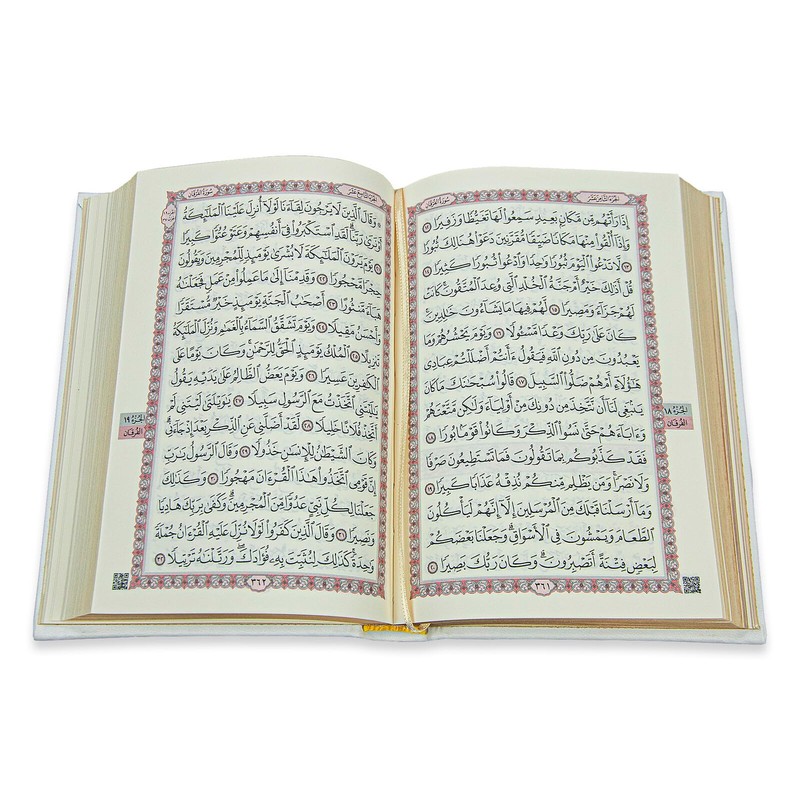 سورة الفرقان
الجزء الثامن عشر
إِذَا رَأَتْهُم مِّن مَّكَانٍ بَعِيدٍ سَمِعُوا۟ لَهَا تَغَيُّظًا وَزَفِيرًا ١٢
وَإِذَآ أُلْقُوا۟ مِنْهَا مَكَانًا ضَيِّقًا مُّقَرَّنِينَ دَعَوْا۟ هُنَالِكَ ثُبُورًا
١٣ لَّا تَدْعُوا۟ ٱلْيَوْمَ ثُبُورًا وَٰحِدًا وَٱدْعُوا۟ ثُبُورًا كَثِيرًا ١٤
قُلْ أَذَٰلِكَ خَيْرٌ أَمْ جَنَّةُ ٱلْخُلْدِ ٱلَّتِى وُعِدَ ٱلْمُتَّقُونَ ۚ كَانَتْ
لَهُمْ جَزَآءً وَمَصِيرًا ١٥ لَّهُمْ فِيهَا مَا يَشَآءُونَ خَٰلِدِينَ ۚ
كَانَ عَلَىٰ رَبِّكَ وَعْدًا مَّسْـُٔولًا ١٦ وَيَوْمَ يَحْشُرُهُمْ وَمَا
يَعْبُدُونَ مِن دُونِ ٱللَّهِ فَيَقُولُ ءَأَنتُمْ أَضْلَلْتُمْ عِبَادِى
هَٰٓؤُلَآءِ أَمْ هُمْ ضَلُّوا۟ ٱلسَّبِيلَ ١٧ قَالُوا۟ سُبْحَٰنَكَ مَا كَانَ
يَنۢبَغِى لَنَآ أَن نَّتَّخِذَ مِن دُونِكَ مِنْ أَوْلِيَآءَ وَلَٰكِن مَّتَّعْتَهُمْ
وَءَابَآءَهُمْ حَتَّىٰ نَسُوا۟ ٱلذِّكْرَ وَكَانُوا۟ قَوْمًۢا بُورًا ١٨
فَقَدْ كَذَّبُوكُم بِمَا تَقُولُونَ فَمَا تَسْتَطِيعُونَ صَرْفًا
وَلَا نَصْرًا ۚ وَمَن يَظْلِم مِّنكُمْ نُذِقْهُ عَذَابًا كَبِيرًا ١٩
وَمَآ أَرْسَلْنَا قَبْلَكَ مِنَ ٱلْمُرْسَلِينَ إِلَّآ إِنَّهُمْ لَيَأْكُلُونَ
ٱلطَّعَامَ وَيَمْشُونَ فِى ٱلْأَسْوَاقِ ۗ وَجَعَلْنَا بَعْضَكُمْ
لِبَعْضٍ فِتْنَةً أَتَصْبِرُونَ ۗ وَكَانَ رَبُّكَ بَصِيرًا ٢٠
الجزء ١٨
الفرقان
٣٦١
سورة الفرقان
الجزء التاسع عشر
۞ وَقَالَ ٱلَّذِينَ لَا يَرْجُونَ لِقَآءَنَا لَوْلَآ أُنزِلَ عَلَيْنَا ٱلْمَلَٰٓئِكَةُ
أَوْ نَرَىٰ رَبَّنَا ۗ لَقَدِ ٱسْتَكْبَرُوا۟ فِىٓ أَنفُسِهِمْ وَعَتَوْ عُتُوًّا كَبِيرًا
٢١ يَوْمَ يَرَوْنَ ٱلْمَلَٰٓئِكَةَ لَا بُشْرَىٰ يَوْمَئِذٍ لِّلْمُجْرِمِينَ وَيَقُولُونَ
حِجْرًا مَّحْجُورًا ٢٢ وَقَدِمْنَآ إِلَىٰ مَا عَمِلُوا۟ مِنْ عَمَلٍ فَجَعَلْنَٰهُ
هَبَآءً مَّنثُورًا ٢٣ أَصْحَٰبُ ٱلْجَنَّةِ يَوْمَئِذٍ خَيْرٌ مُّسْتَقَرًّا
وَأَحْسَنُ مَقِيلًا ٢٤ وَيَوْمَ تَشَقَّقُ ٱلسَّمَآءُ بِٱلْغَمَٰمِ وَنُزِّلَ ٱلْمَلَٰٓئِكَةُ
تَنزِيلًا ٢٥ ٱلْمُلْكُ يَوْمَئِذٍ ٱلْحَقُّ لِلرَّحْمَٰنِ ۚ وَكَانَ يَوْمًا عَلَى
ٱلْكَٰفِرِينَ عَسِيرًا ٢٦ وَيَوْمَ يَعَضُّ ٱلظَّالِمُ عَلَىٰ يَدَيْهِ يَقُولُ
يَٰلَيْتَنِى ٱتَّخَذْتُ مَعَ ٱلرَّسُولِ سَبِيلًا ٢٧ يَٰوَيْلَتَىٰ لَيْتَنِى لَمْ
أَتَّخِذْ فُلَانًا خَلِيلًا ٢٨ لَّقَدْ أَضَلَّنِى عَنِ ٱلذِّكْرِ بَعْدَ إِذْ جَآءَنِى ۗ
وَكَانَ ٱلشَّيْطَٰنُ لِلْإِنسَٰنِ خَذُولًا ٢٩ وَقَالَ ٱلرَّسُولُ يَٰرَبِّ
إِنَّ قَوْمِى ٱتَّخَذُوا۟ هَٰذَا ٱلْقُرْءَانَ مَهْجُورًا ٣٠ وَكَذَٰلِكَ
جَعَلْنَا لِكُلِّ نَبِىٍّ عَدُوًّا مِّنَ ٱلْمُجْرِمِينَ ۗ وَكَفَىٰ بِرَبِّكَ هَادِيًا
وَنَصِيرًا ٣١ وَقَالَ ٱلَّذِينَ كَفَرُوا۟ لَوْلَا نُزِّلَ عَلَيْهِ ٱلْقُرْءَانُ جُمْلَةً
وَٰحِدَةً ۚ كَذَٰلِكَ لِنُثَبِّتَ بِهِۦ فُؤَادَكَ ۖ وَرَتَّلْنَٰهُ تَرْتِيلًا ٣٢
الجزء ١٩
الفرقان
٣٦٢